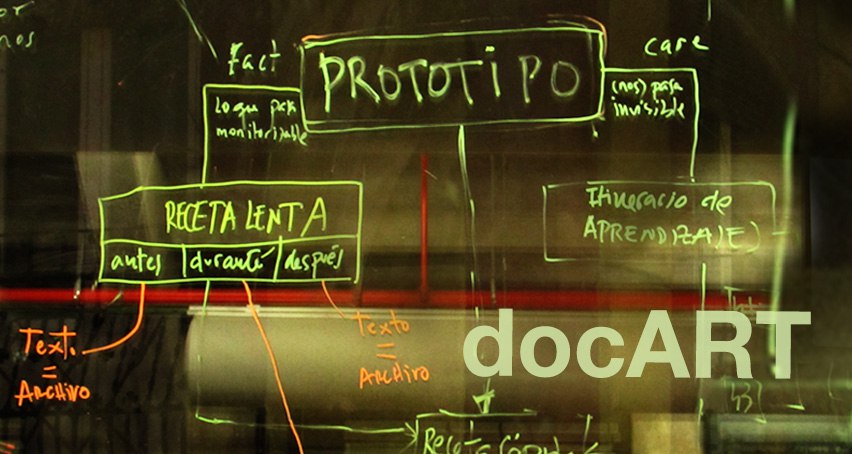 fact
care
PROTOTIPO
Lo que pasa
monitorizable
(nos) pasa
invisible
RECETA LENTA
antes
durante
después
Itinerario de
APRENDIZAJE)
Texto
=
ARCHIVO
Texto
=
ARCHIVO
docART
Receta